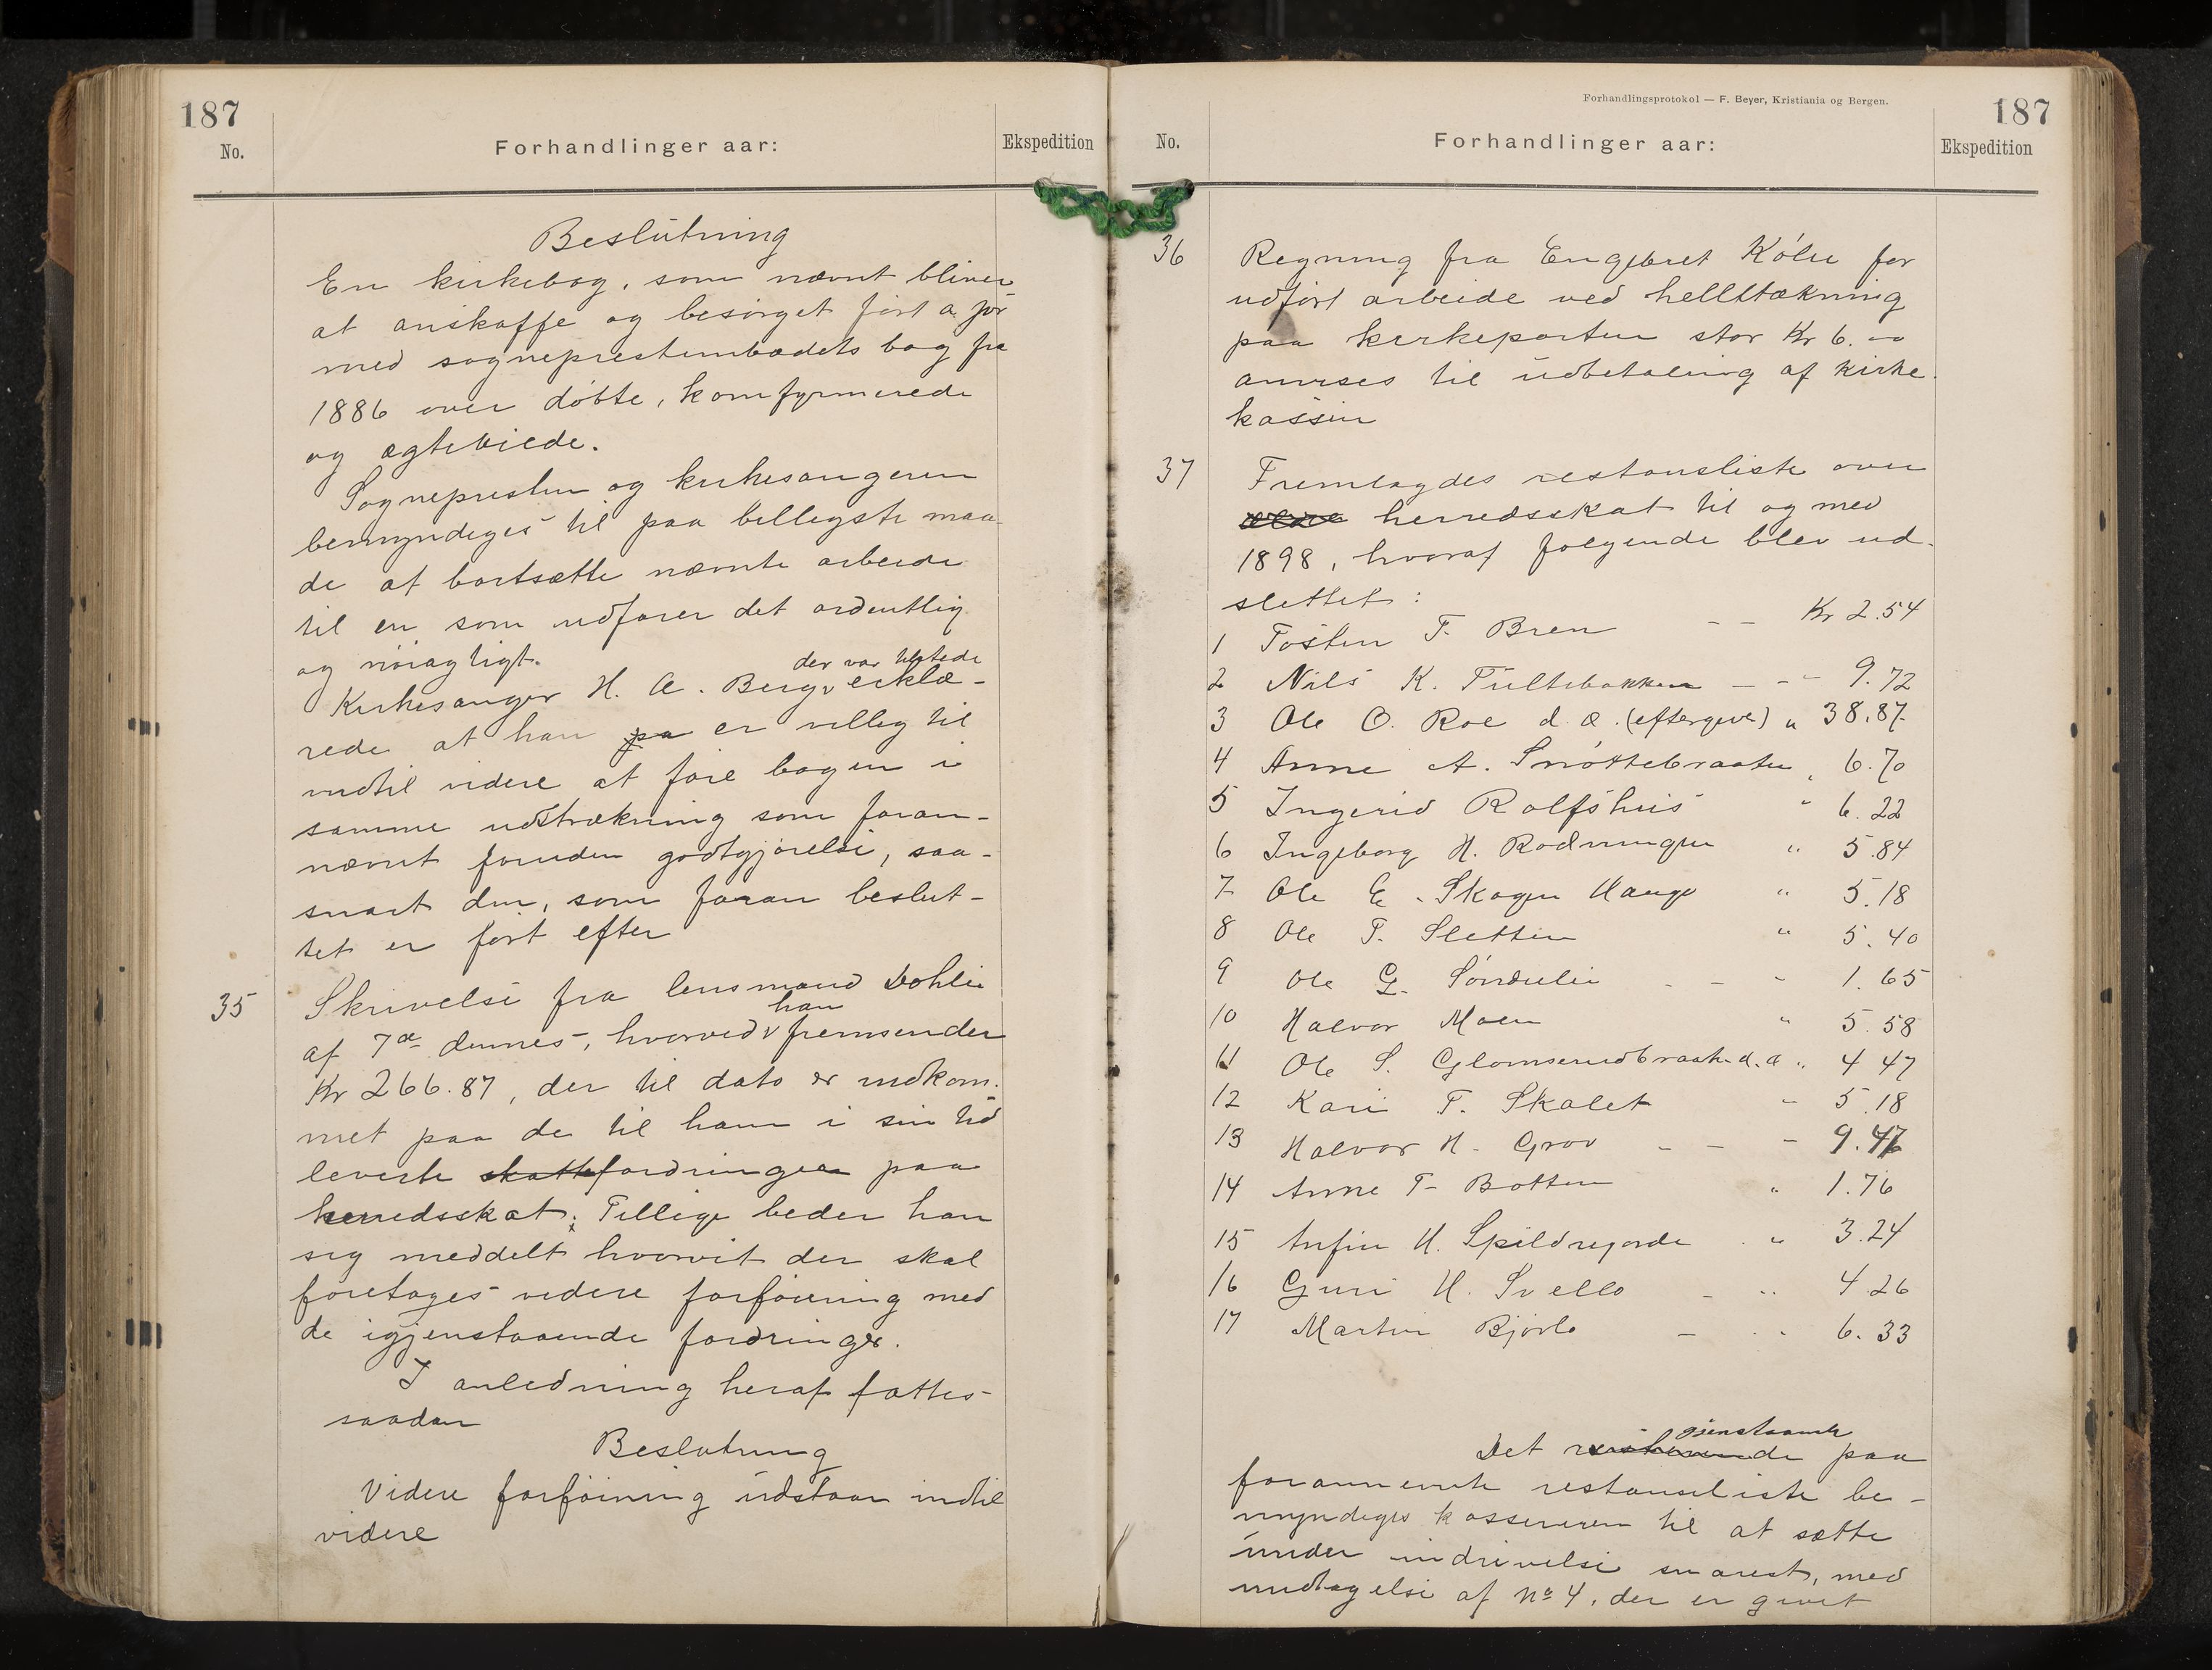 187
No.
Forhandlinger aar:
Ekspedition
Beslutning
En kirkebog, som nævnt bliver
at anskaffe og besørget ført a jör
med sogneprestembædets bog fra
1886 over döbte, komfyrmerede
og ægteviede.
Sognepresten og kirkesangeren
bemyndiges til paa billigste maa-
de at bortsætte nævnte arbeide
til en som udfører det ordentlig
og nöiagtigt.
der var tilstede
Kirkesanger H. A. Berg erklæ-
rede at han pa er villig til
indtil videre at före bogen i
samme udstrækning som foran-
nævnt foruden godtgjörelse, saa-
snart den, som foran beslut-
tet er fört efter
35 Skrivelse fra lensmand Dohlie
han
af 7de dennes, hvorved fremsender
Kr 266.87, der til dato er indkom-
met paa de til ham i sin tid
leverte skattefordringer paa
herredsskat; Tillige beder han
sig meddelt hvorvit der skal
foretages videre forföiening med
de igjenstaaende fordringer.
I anledning heraf fattes
saadan
Beslutning
Videre forföining udstaar indtil
videre
Forhandlingsprotokol — F. Beyer, Kristiania og Bergen.
187
No.
Forhandlinger aar:
Ekspedition
36 Regning fra Engebret Kölse for
udfört arbeide ved helletækning
paa kirkeporten stor Kr 6.00
anvises til udbetaling af kirke-
kassen
37 Fremlagdes restanseliste over
ældre herredsskat til og med
1898, hvoraf følgende blev ud-
slettet:
1 Tosten T. Bren - - Kr 2.54
2 Nils K. Tultebakken - - - 9.72
3 Ole O. Roe d. æ. (eftergivet) " 38.87
4 Anne A. Snöttebraaten " 6.70
5 Ingerid Rolfshus " 6.22
6 Ingeborg H. Rodningen " 5.84
7 Ole E. Skogen Hauge " 5.18
8 Ole T. Sletten " 5.40
9 Ole G. Söndrelie - - - 1.65
10 Halvor Moen " 5.58
11 Ole S. Glomserudbraate d. æ " 4 47
12 Kari T. Skalet " 5.18
13 Halvor H. Grov - - - 9.47
14 Anne T. Botten " 1.76
15 Anfin H. Spildregjorde " 3.24
16 Guri H. Svello - " 4.26
17 Martin Björlo - " 6.33
gjenstaaende
Det resterende paa
forannævnte restanseliste be-
myndiges kassereren til at sætte
under inddrivelse snarest, med
undtagelse af No 4, der er givet